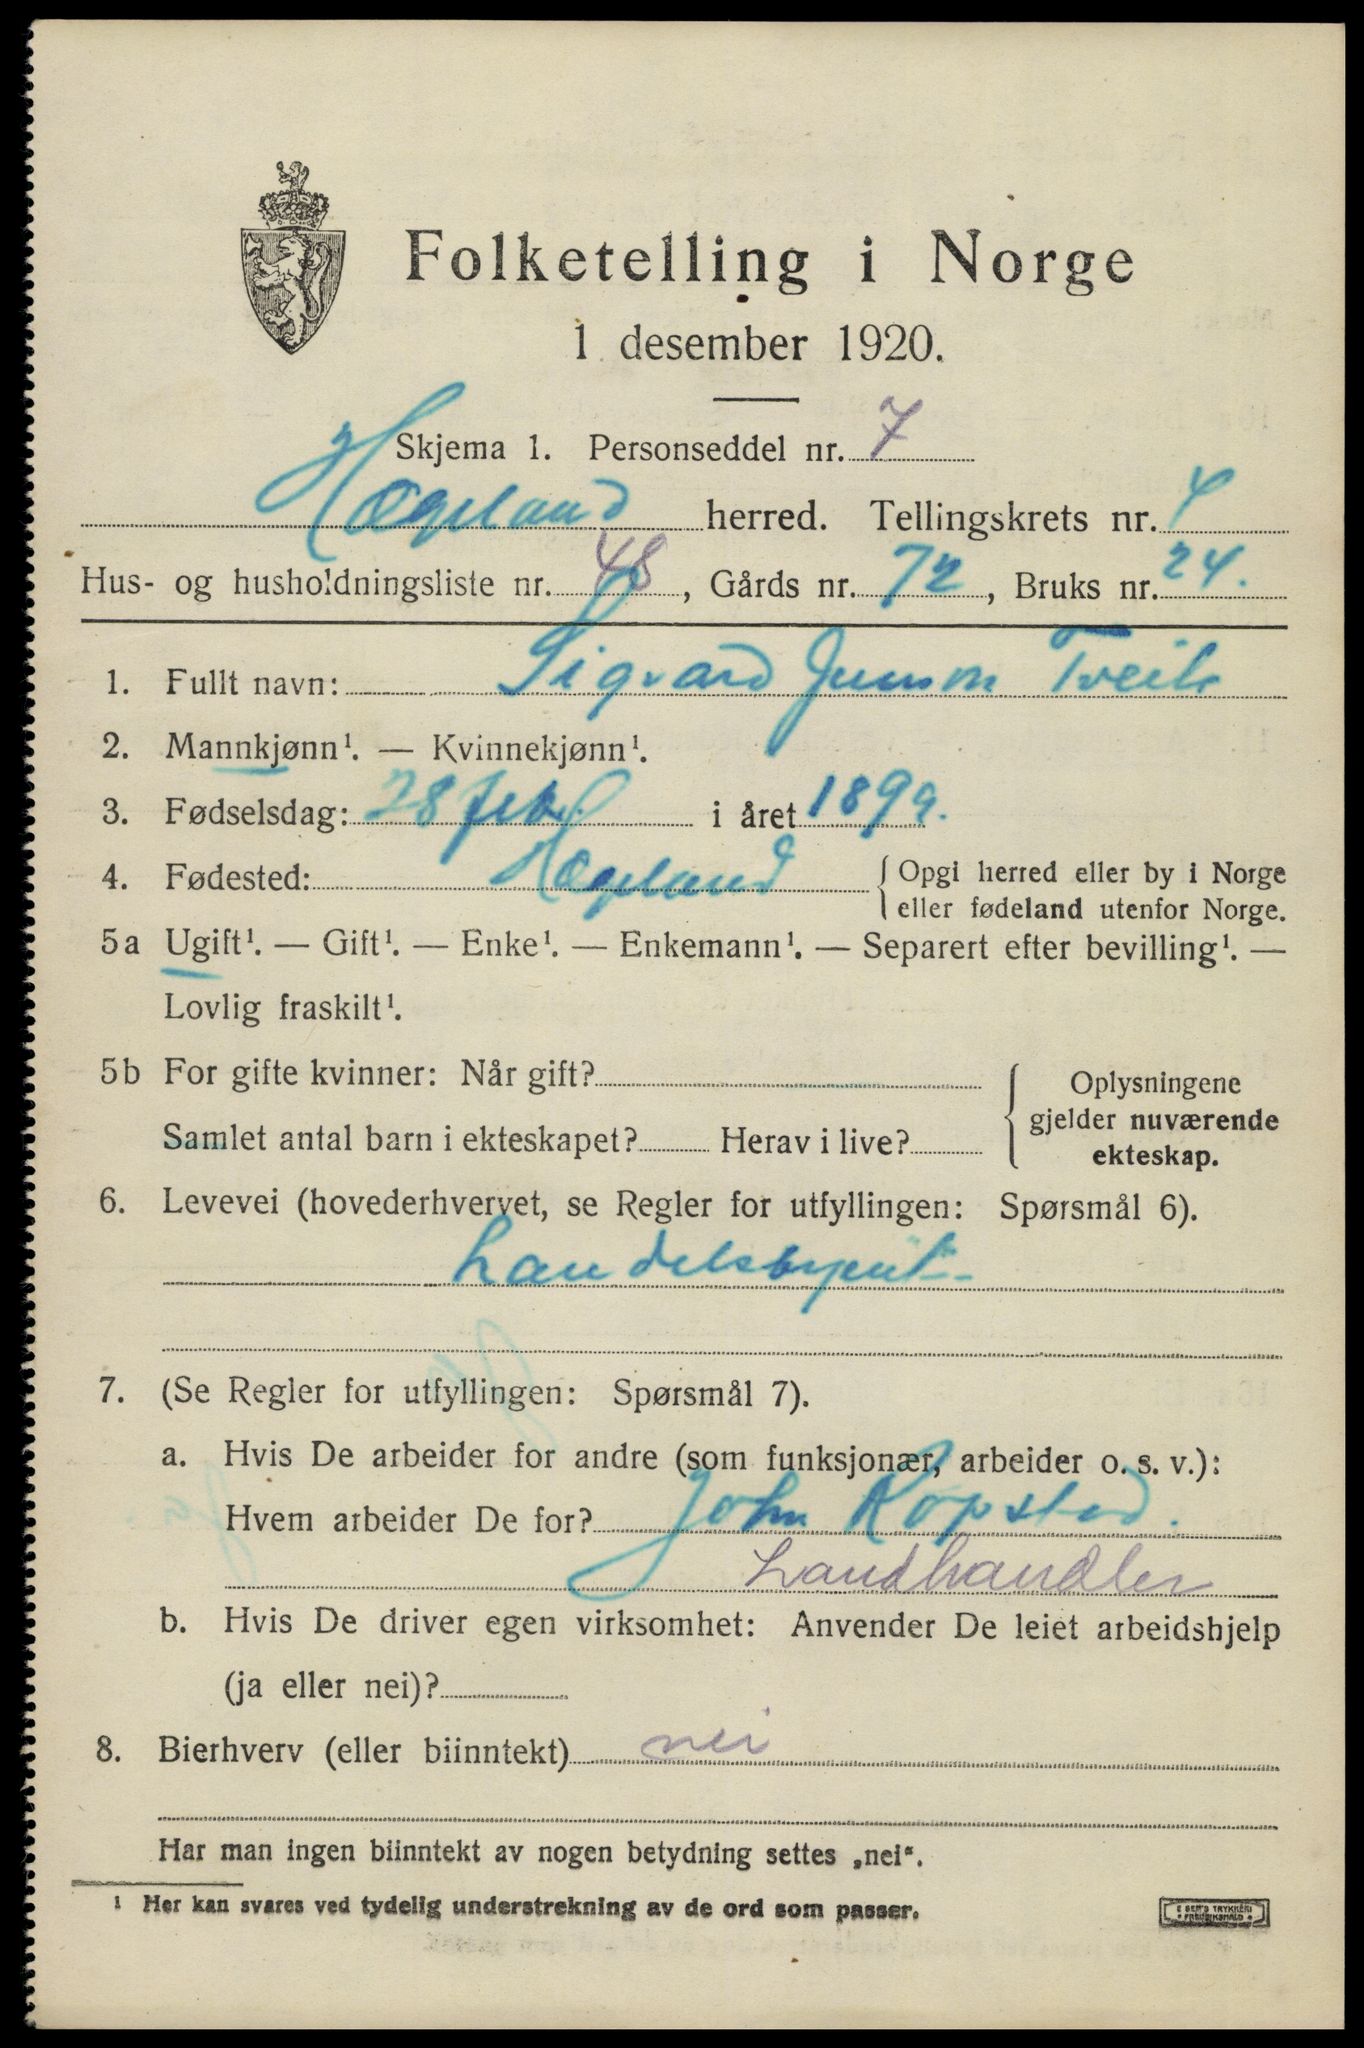 Folketelling i Norge
1 desember 1920.
Skjema 1. Personseddel nr. 7
Hægeland herred. Tellingskrets nr. 4
Hus- og husholdningsliste nr. 48, Gårds nr. 72, Bruks nr. 24.
1. Fullt navn: Sigvard Tveite
2. Mannkjønn¹. — Kvinnekjønn¹.
3. Fødselsdag: 28 feb. i året 1899.
4. Fødested: Hægeland { Opgi herred eller by i Norge
eller fødeland utenfor Norge.
5a Ugift¹. — Gift¹. — Enke¹. — Enkemann¹. — Separert efter bevilling¹. —
Lovlig fraskilt¹.
5b For gifte kvinner: Når gift? { Oplysningene
gjelder nuværende
ekteskap.
Samlet antal barn i ekteskapet? Herav i live?
6. Levevei (hovederhvervet, se Regler for utfyllingen: Spørsmål 6).
7. (Se Regler for utfyllingen: Spørsmål 7).
a. Hvis De arbeider for andre (som funksjonær, arbeider o. s. v.):
Hvem arbeider De for? John Kopstad.
Landhandler
b. Hvis De driver egen virksomhet: Anvender De leiet arbeidshjelp
(ja eller nei)?
8. Bierhverv (eller biinntekt) nei
Har man ingen biinntekt av nogen betydning settes „nei“.
¹ Her kan svares ved tydelig understrekning av de ord som passer.
E SEM'S TRYKKERI
FREDRIKSHALD